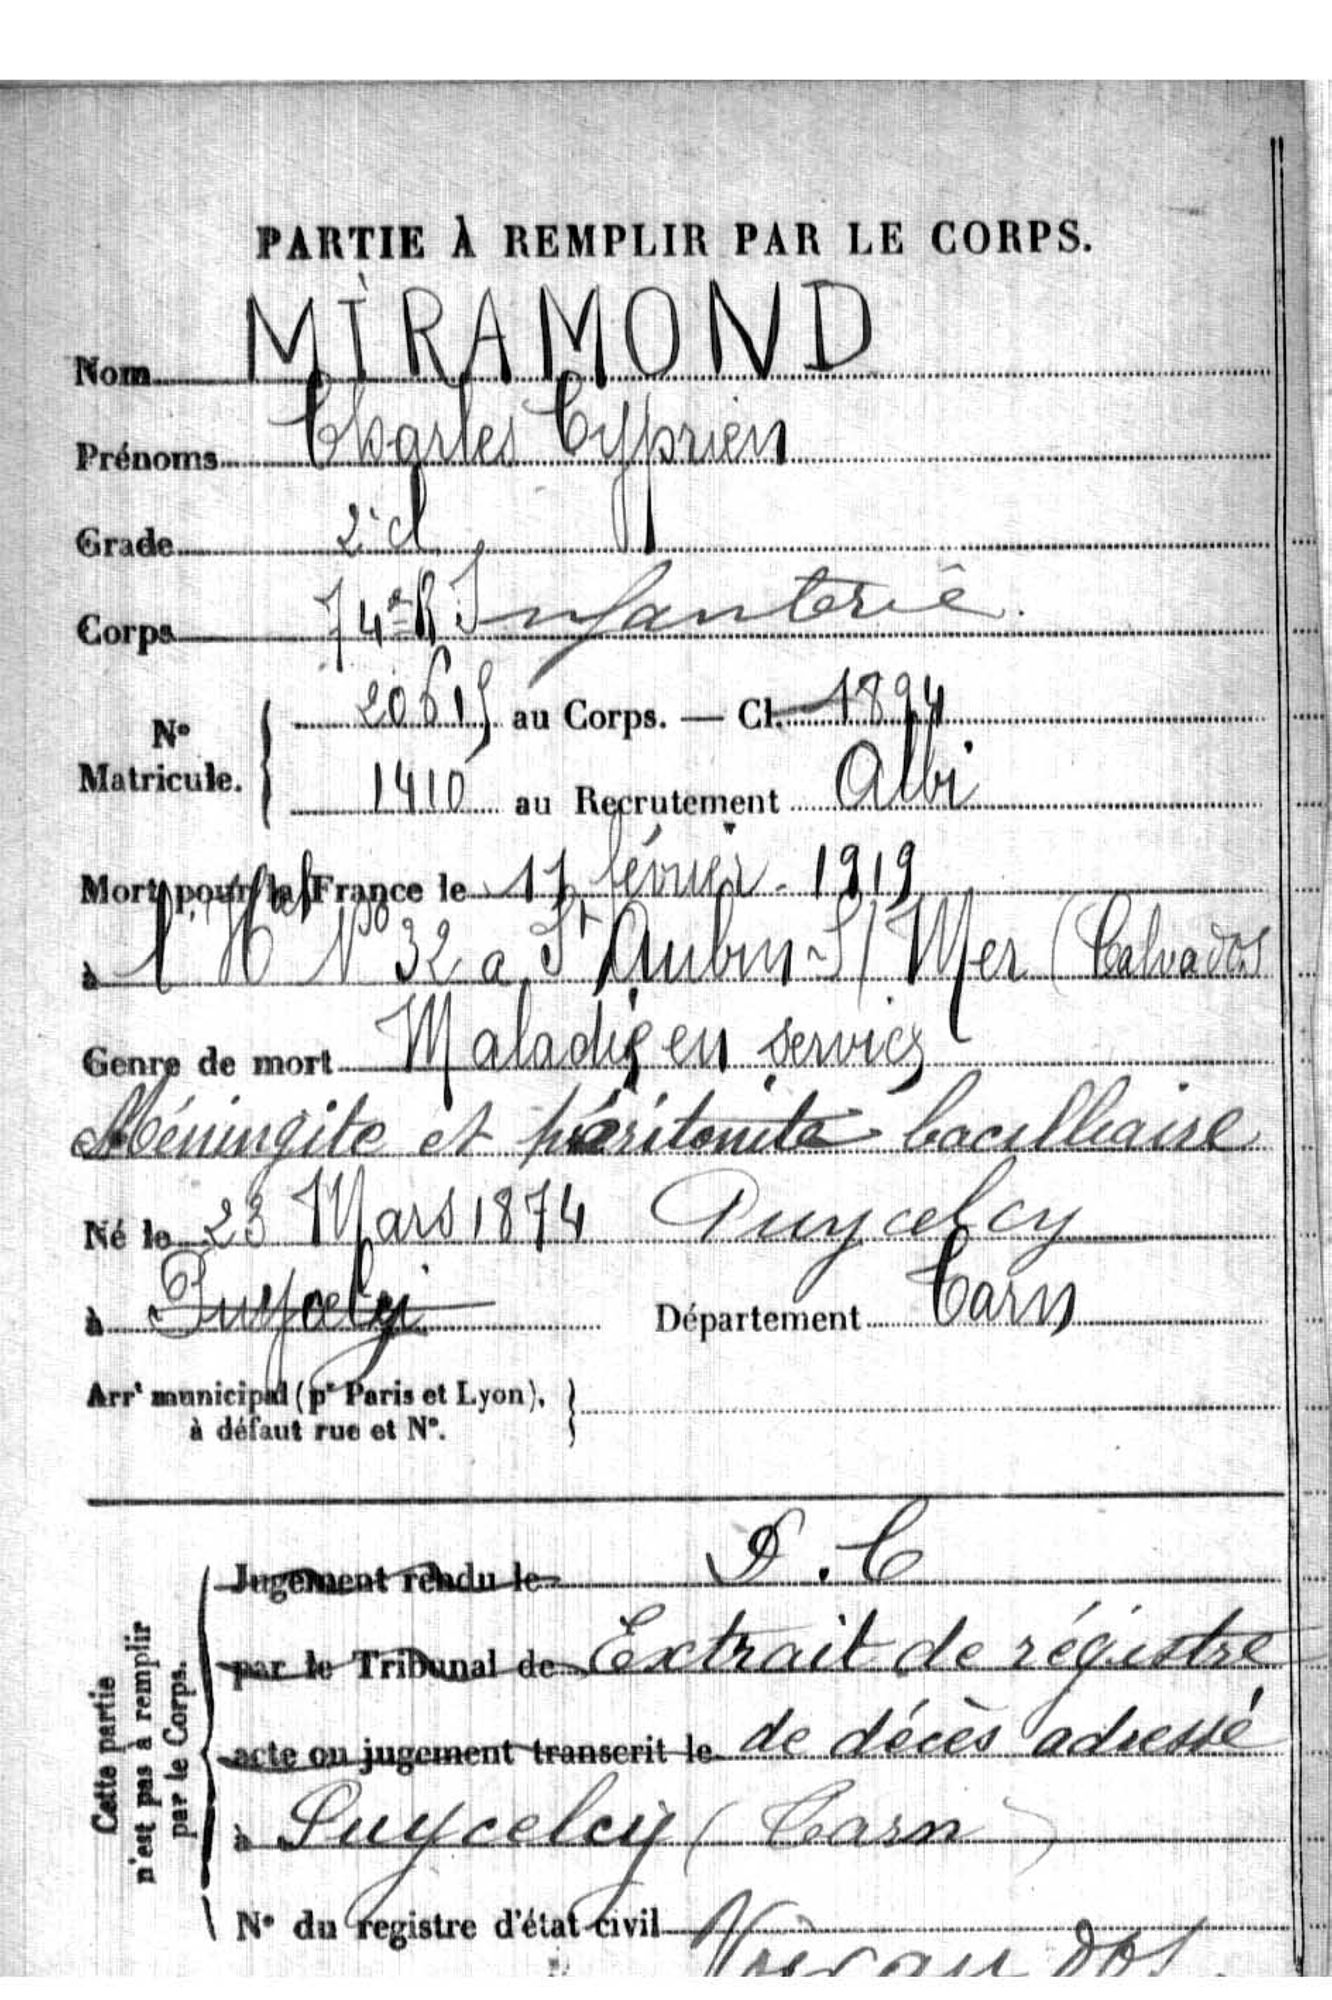 PARTIE À REMPLIR PAR LE CORPS.
Nom MIRAMOND
Prénoms Charles Cyprien
Grade 2e cl
Corps 74e R Infanterie.
N° Matricule. 20615 au Corps. — Cl. 1894
1410 au Recrutement Albi
Mort pour la France le 11 février 1919
à l'Hal No 32 a St Aubin S/ Mer (Calvados
Genre de mort Maladie en service
Méningite et péritonite bacilliaire
Né le 23 Mars 1874 Puycelcy
à Puycelci Département Tarn
Arrt municipal (pr Paris et Lyon),
à défaut rue et N°.
Cette partie
n'est pas à remplir
par le Corps.
Jugement rendu le D. C
par le Tribunal de Extrait de régistre
acte ou jugement transcrit le de décès adressé
à Puycelcy (Tarn)
N° du registre d'état civil Voir au dos.